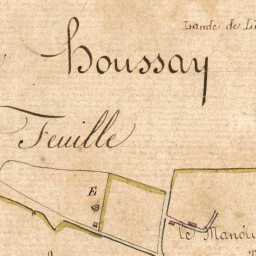 Lande de
houssay
Feuille
E
le Manoir